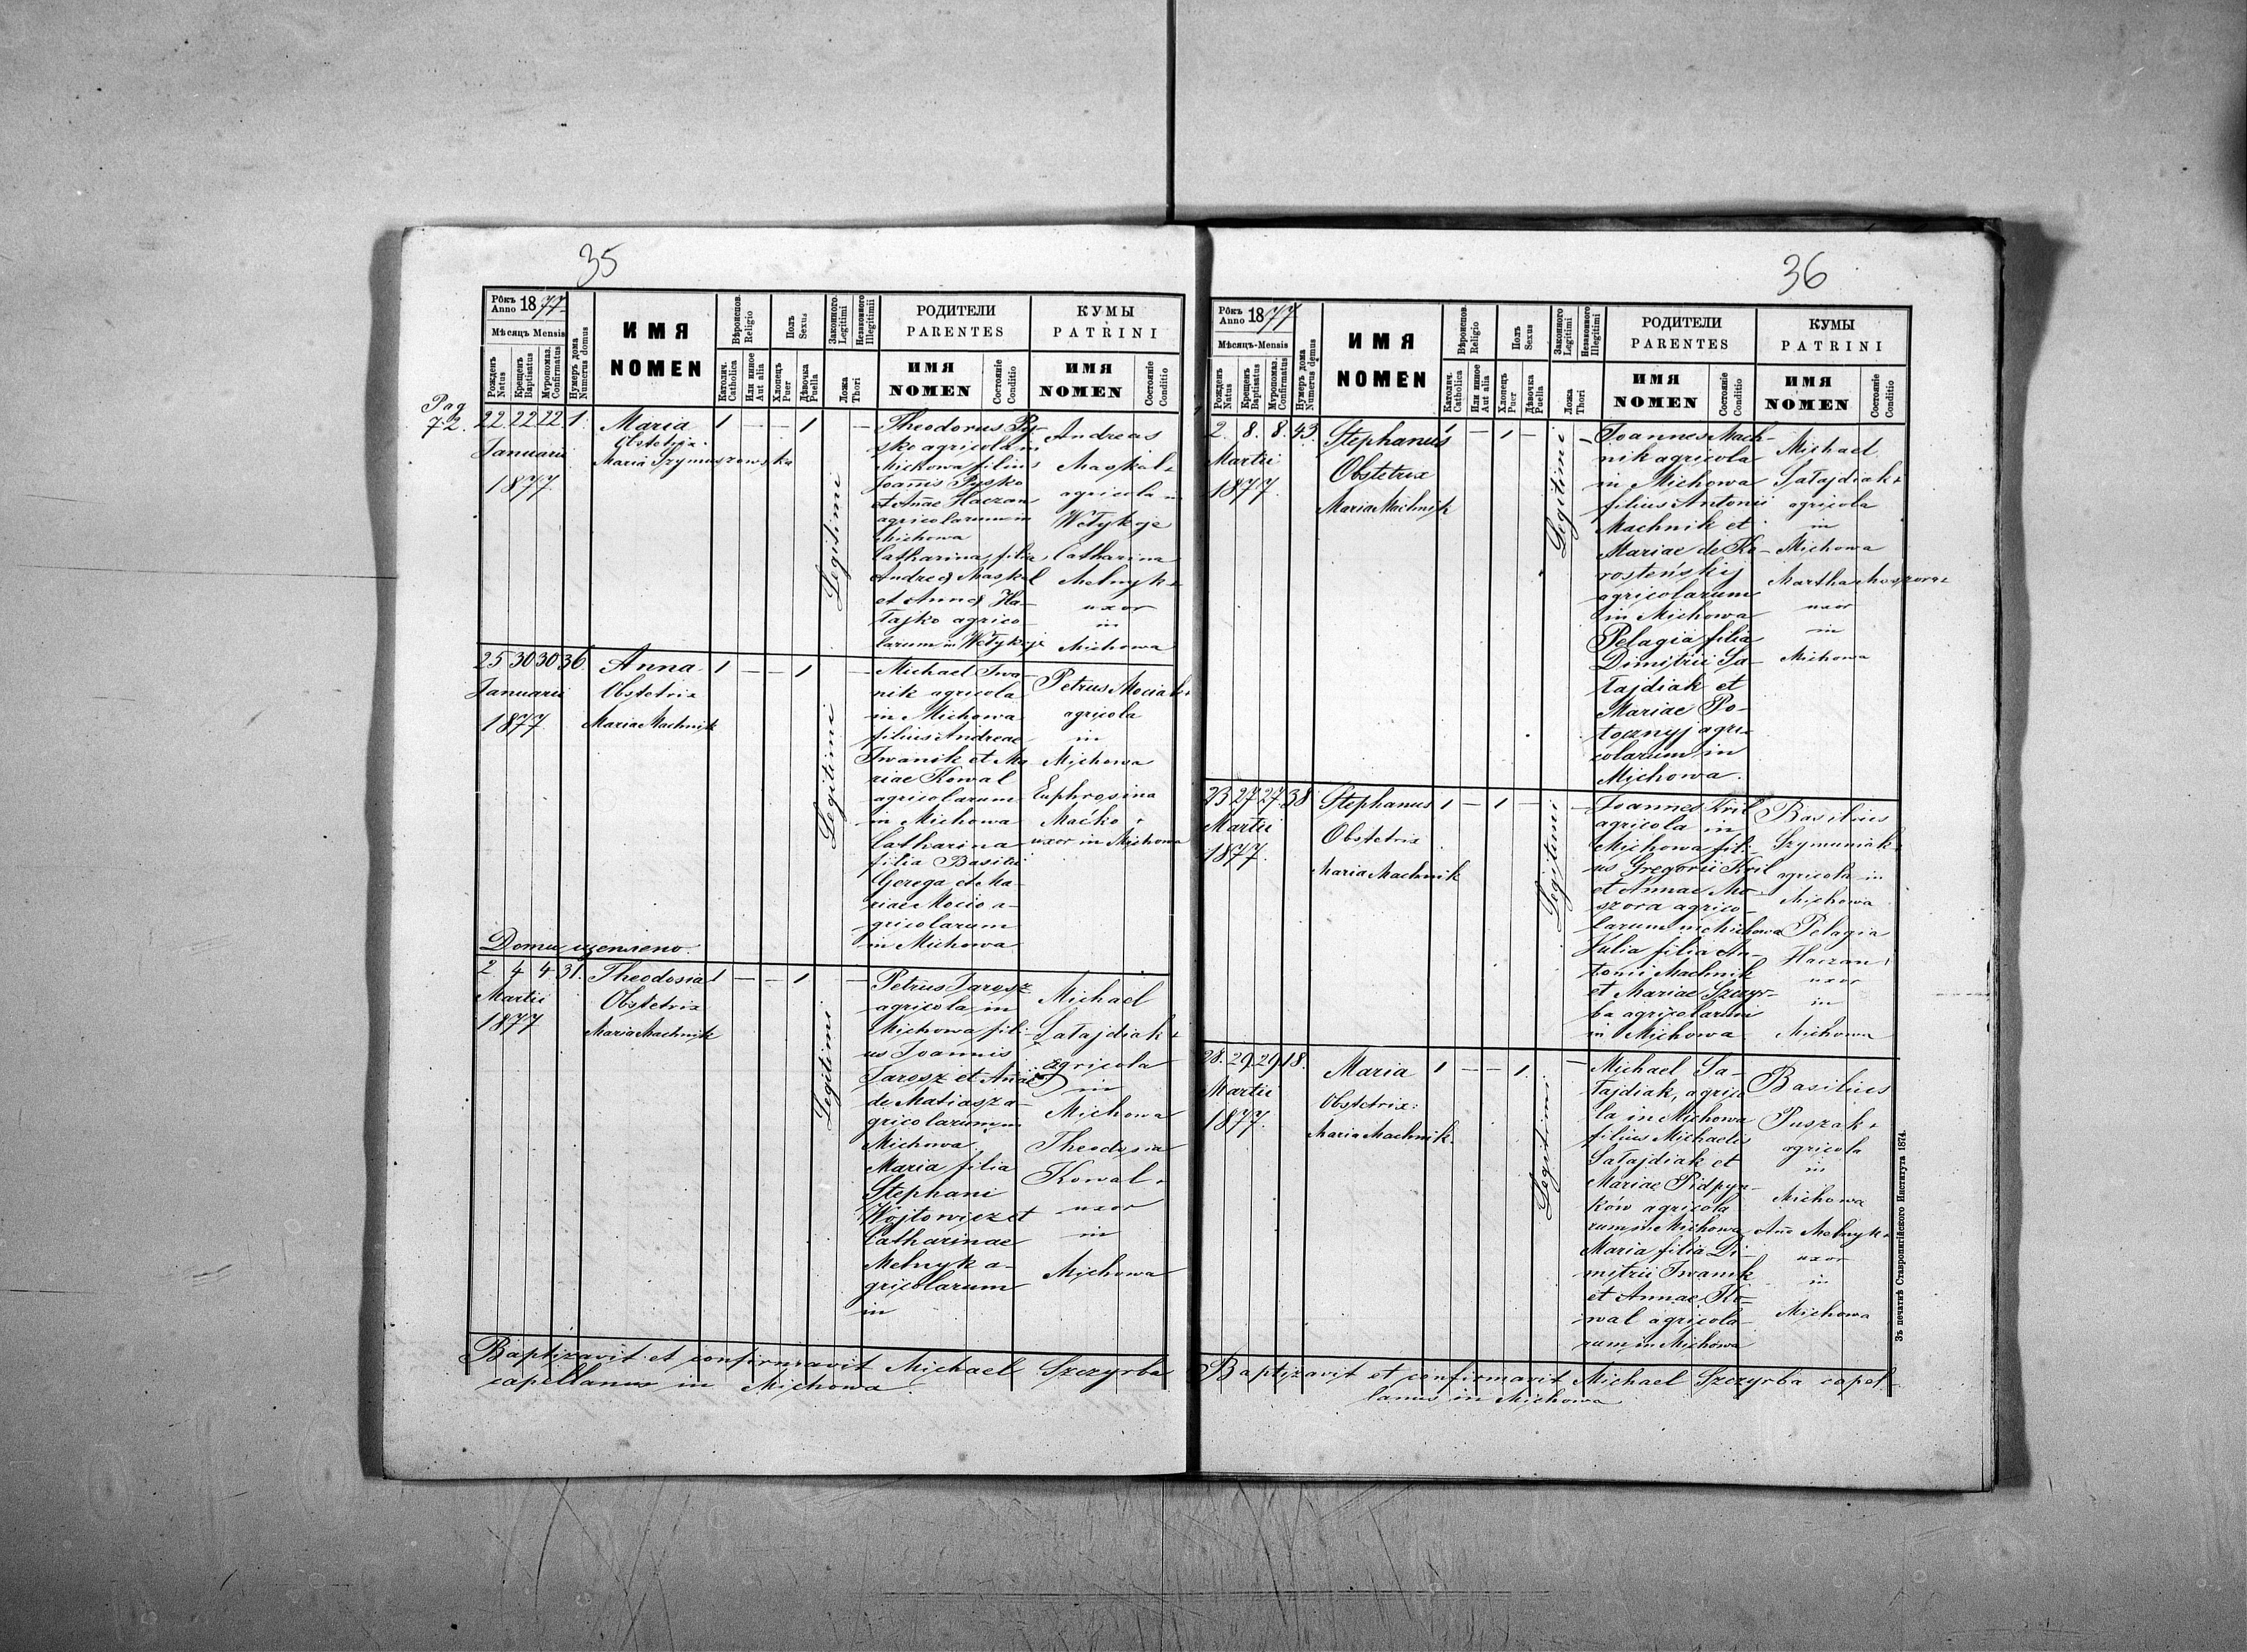 35
Рôкъ Anno 1877
Мѣсяцъ Mensis
Рожденъ Natus
Крещенъ Baptisatus
Мѵропомаз. Confirmatus
Нумеръ дома Numerus domus
ИМЯ
NOMEN
Вѣроиспов. Religio
Католич. Catholica
Или иное Aut alia
Полъ Sexus
Хлопецъ Puer
Дѣвочка Puella
Законного Legitimi
Незаконного Illegitimi
Ложа Thori
РОДИТЕЛИ
PARENTES
ИМЯ
NOMEN
Состоянiе Conditio
КУМЫ
PATRINI
ИМЯ
NOMEN
Состоянiе Conditio
Pag
72.
22 22 22 1.
Januarii
1877
Maria
Obstetrix
Maria Szymuszowska
1 — — 1
Legitimi
—
Theodorus Py-
sko agricola in
Michowa filius
Joañis Pysko
et Añae Haczan
agricolarum in
Michowa
Catharina, filia
Andreą Maskal
et Anną Ha-
łajko agrico
larum in Wełykoje
Andreas
Maskal +
agricola in
Wełykoje
Catharina
Melnyk +
uxor
in
Michowa
25 30 30 36.
Januarii
1877
Anna
Obstetrix
Maria Machnik
1 — — 1
Legitimi
—
Michael Iwa-
nik agricola
in Michowa
filius Andreae
Iwanik et Ma
riae Kowal
agricolarum
in Michowa
Catharina
filia Basilii
Gerega et Ma-
riae Mocio a-
gricolarum
in Michowa
Petrus Mociak +
agricola
in
Michowa
Euphrosina
Maćko +
uxor in Michowa
2 4 4 31.
Martii
1877
Theodosia
Obstetrix
Maria Machnik
1 — — 1
Legitimi
—
Petrus Jarosz
agricola in
Michowa fili-
us Joannis
Jarosz et Añae
de Matiasz a-
gricolarum in
Michowa
Maria filia
Stephani
Wojtowicz et
Catharinae
Melnyk a-
gricolarum
in
Michael
Sałajdiak +
agricola
in
Michowa
Theodosia
Kowal +
uxor
in
Michowa
Baptizavit et confirmavit Michael Szczyrba
capellanus in Michowa.
36
Рôкъ Anno 1877
Мѣсяцъ-Mensis
Рожденъ Natus
Крещенъ Baptisatus
Мѵропомаз. Confirmatus
Нумеръ дома Numerus domus
ИМЯ
NOMEN
Вѣроиспов. Religio
Католич. Catholica
Или иное Aut alia
Полъ Sexus
Хлопецъ Puer
Дѣвочка Puella
Законного Legitimi
Незаконного Illegitimi
Ложа Thori
РОДИТЕЛИ
PARENTES
ИМЯ
NOMEN
Состоянiе Conditio
КУМЫ
PATRINI
ИМЯ
NOMEN
Состоянiе Conditio
2. 8. 8. 43.
Martii
1877.
Stephanus
Obstetrix
Maria Machnik
1 — 1 —
Legitimi
—
Joannes Mach-
nik agricola
in Michowa
filius Antonii
Machnik et
Mariae de Ko-
rosteńskij
agricolarum
in Michowa
Pelagia filia
Dimitrii Sa-
łajdiak et
Mariae Po-
tocznyj agri-
colarum in
Michowa.
Michael
Sałajdiak +
agricola
in
Michowa
Martha Moszora +
uxor
in
Michowa
23 27 27 38
Martii
1877.
Stephanus
Obstetrix
Maria Machnik
1 — 1 —
Legitimi
—
Joannes Kril
agricola in
Michowa fili-
us Gregorii Kril
et Annae Mo-
szora agrico-
larum in Michowa
Julia filia An-
tonii Machnik
et Mariae Szczyr-
ba agricolarum
in Michowa
Basilius
Szymuniak +
agricola in
Michowa
Pelagia
Haczan +
uxor
in
Michowa
28. 29. 29. 18.
Martii
1877.
Maria
Obstetrix:
Maria Machnik.
1 — — 1.
Legitimi
—
Michael Sa-
łajdiak, agrico
la in Michowa
filius Michaelis
Sałajdiak et
Mariae Pidpyn-
ków agricola
rum in Michowa
Maria filia Di-
mitrii Iwanik
et Annae Ko-
wal agricola-
rum in Michowa
Basilius
Puszak +
agricola
in
Michowa
Aña Melnyk +
uxor
in
Michowa
Baptizavit et confirmavit Michael Szczyrba capel-
lanus in Michowa
Зъ печатнѣ Ставропигiйского Института 1874.